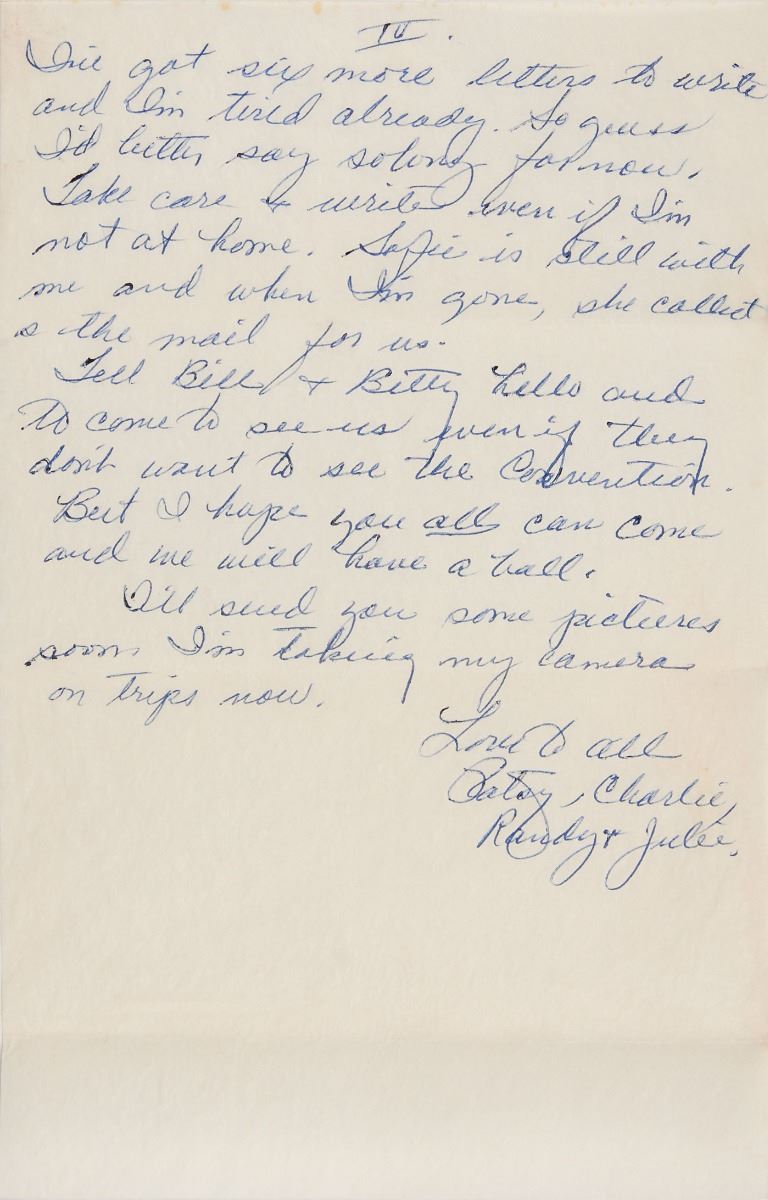 IV.
I've got six more letters to write
and I'm tired already. So guess
I'd better say solong for now.
Take care & write even if I'm
not at home. Sofie is still with
me and when I'm gone, she collect
s the mail for us.
Tell Bill & Betty hello and
to come to see us even if they
don't want to see the Convention.
But I hope you all can come
and we will have a ball.
I'll send you some pictures
soon. I'm taking my camera
on trips now.
Love to all
Patsy, Charlie,
Randy & Julie.